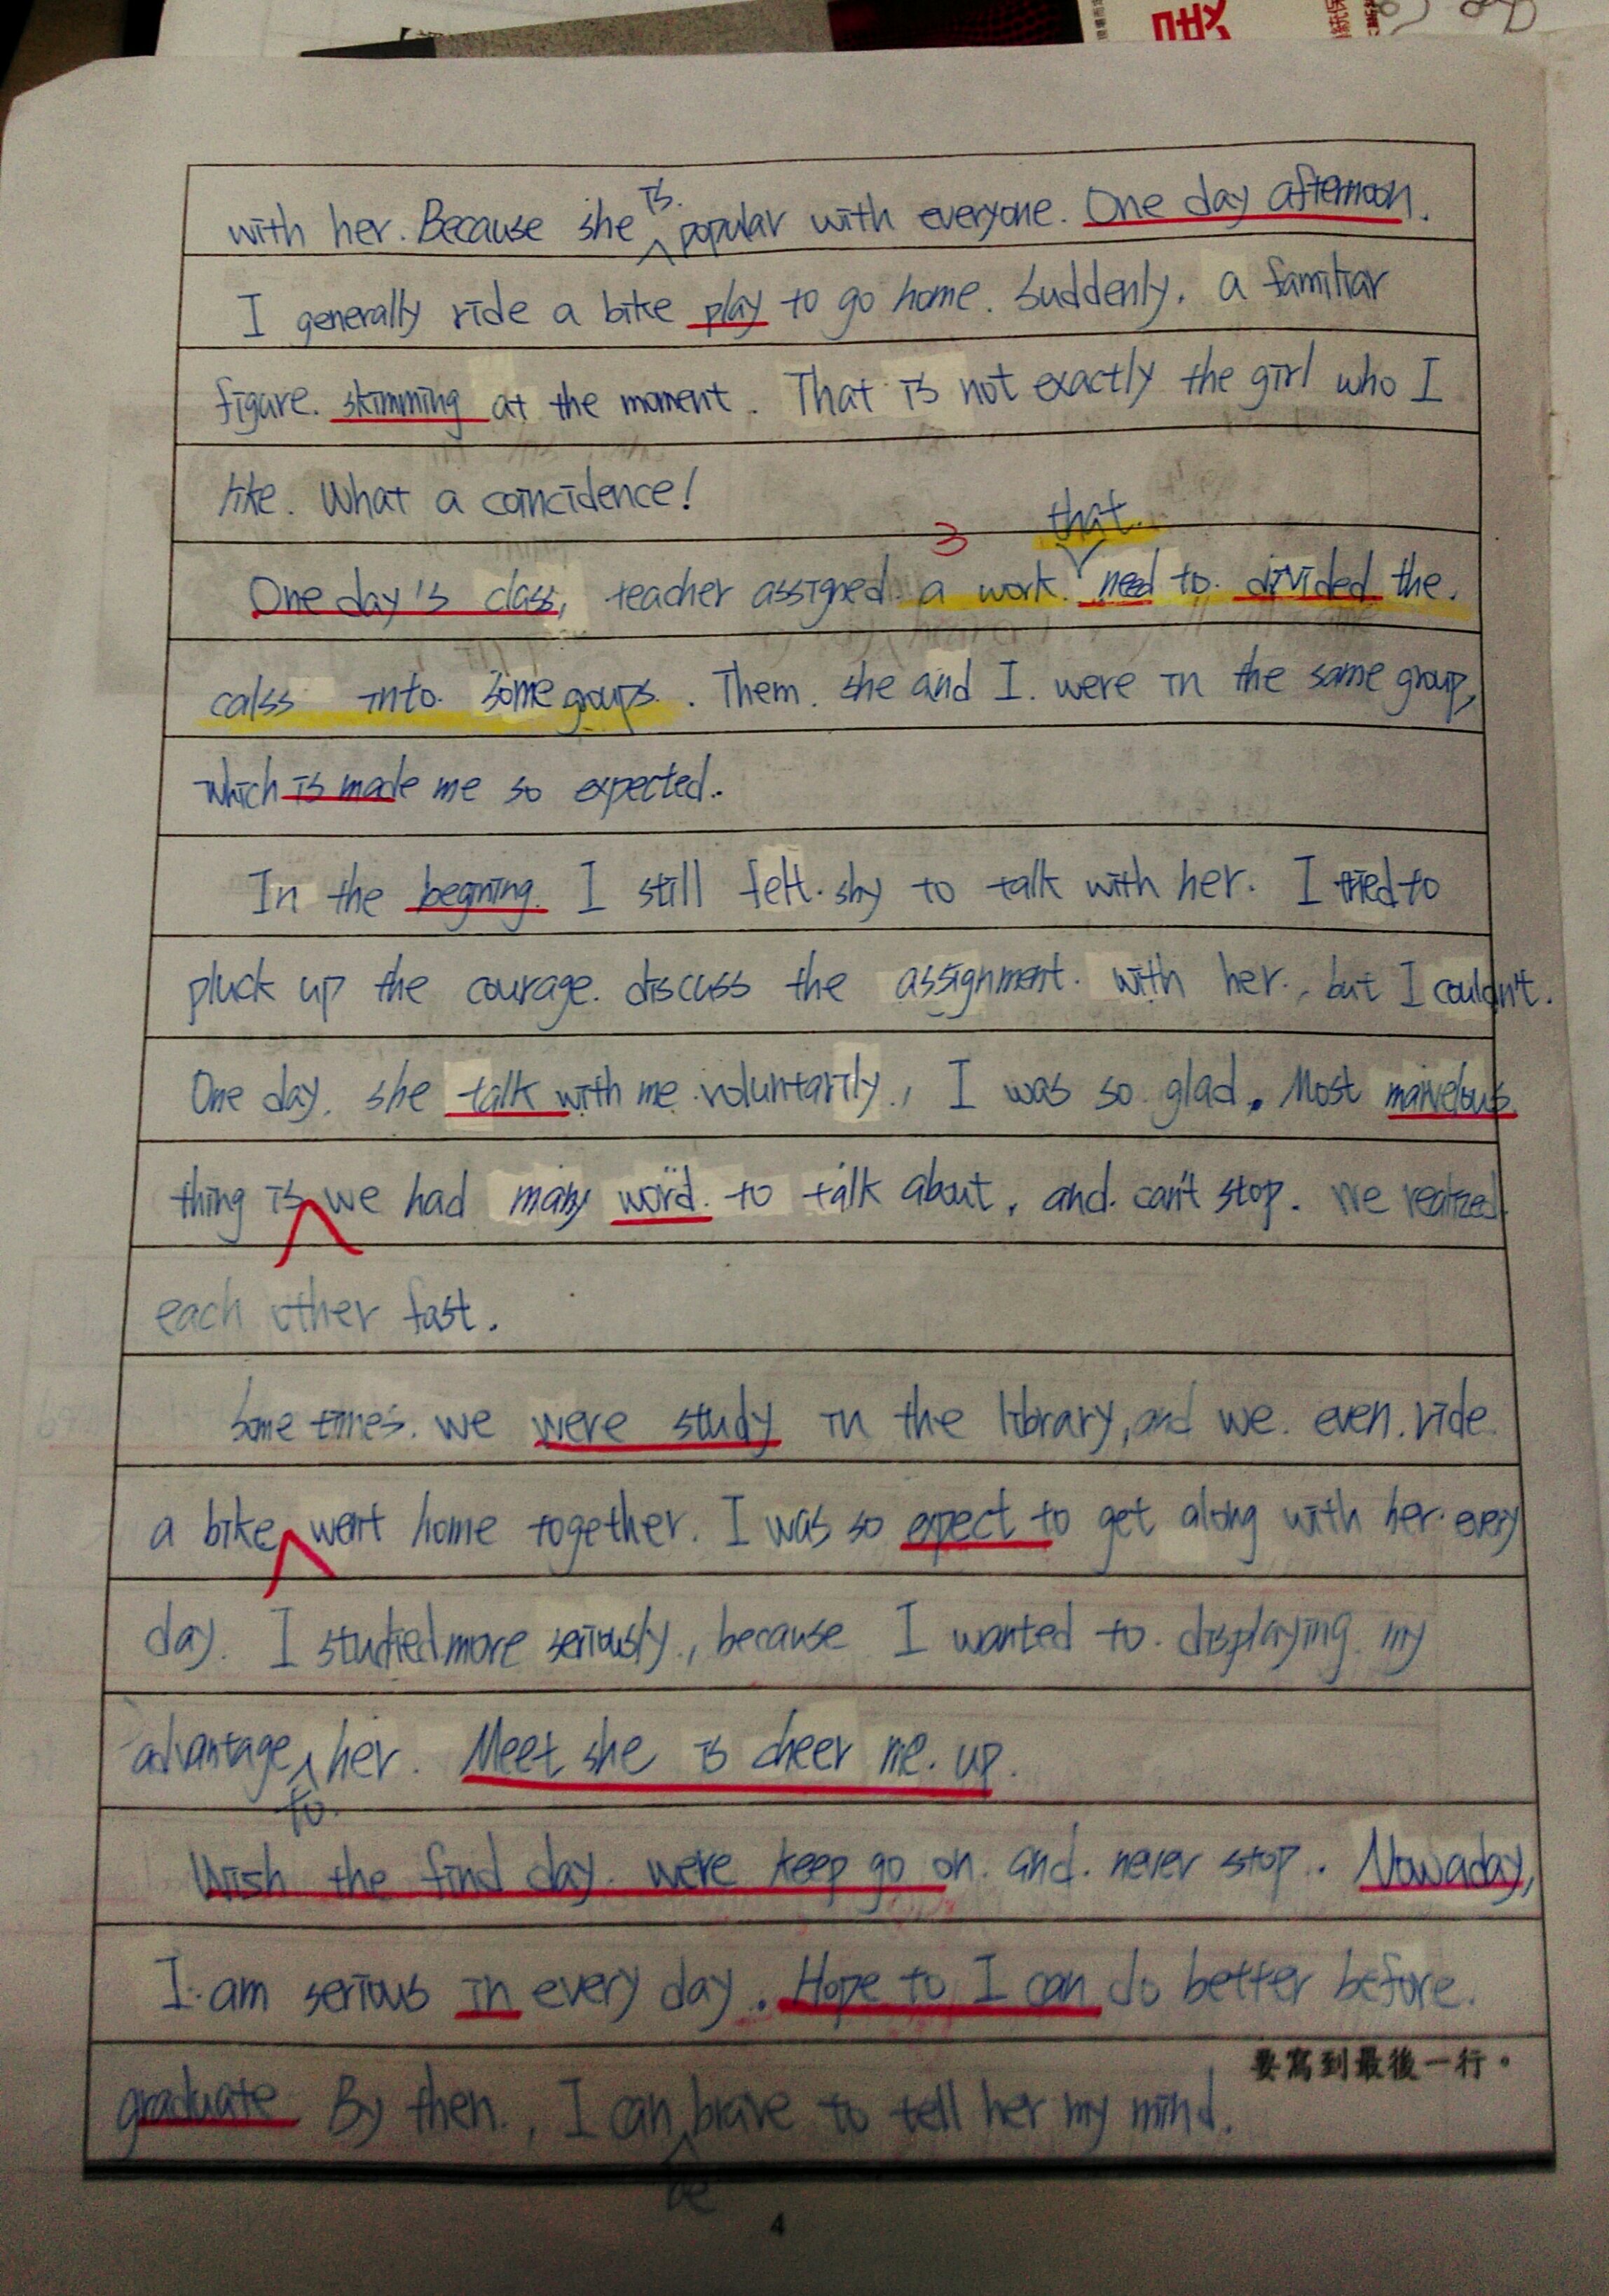 with her. Because she is popular with everyone. One day afternoon.
I generally ride a bike play to go home. Suddenly, a familiar
figure. skimming at the moment. That is not exactly the girl who I
like. What a coincidence!
3
One day's class, teacher assigned a work that need to divided the
calss into some groups. Them she and I were in the same group,
which is made me so expected.
In the begining. I still felt shy to talk with her. I tried to
pluck up the courage. discuss the assignment with her, but I couldn't.
One day, she talk with me voluntarily, I was so glad. Most marvelous
thing is we had many word to talk about, and can't stop. We realized
each other fast.
Some times. we were study in the library, and we even ride
a bike went home together. I was so expect to get along with her every
day. I studied more seriously, because I wanted to displaying my
advantage to her. Meet she is cheer me up.
Wish the find day were keep go on and never stop. Nowaday,
I am serious in every day. Hope to I can do better before
要寫到最後一行。
graduate By then, I can be brave to tell her my mind.
4